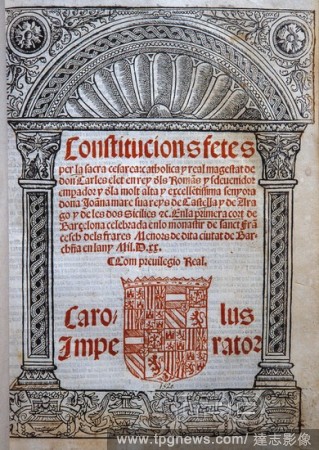 Constitucions fetes
per la sacra cesarea catholica y real magestat de
don Carles elet en rey dls Romãs y sdeuenidor
emperador y dla molt alta y excellētissima senyora
dona Joāna mare sua reys de Castella y de Ara
go y de les dos Sicilies ⁊c. En la primera cort de
Barçelona celebrada en lo monastir de sanct Frā
cesch dels frares Menors de dita ciutat de Bar-
en lany Mil.D.xx.
Com priuilegio Real.
Caro- lus
Impe rator
1520
www.tpgnews.com/ 達志影像